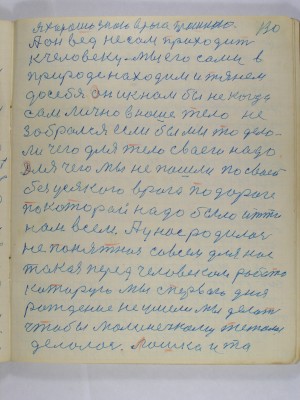 я хорошо знаю врага
130
А он вед не сам приходит
к человеку. мы его сами в
природе находим и тянем
до себя. Он и к нам бы некогда
сам лично в наше тело не
забрался если бы мы то дела-
ли чего для тело своего надо.
Для чего мы не пошли по своей
без усякого врага по дороге
по которой надо было итти
нам всем. А у нас родилась
не понятная совсем для нас
такая перед человеком работа
которую мы с первого дня
рождение не умели мы делать
чтобы маленькому
делалос. и та